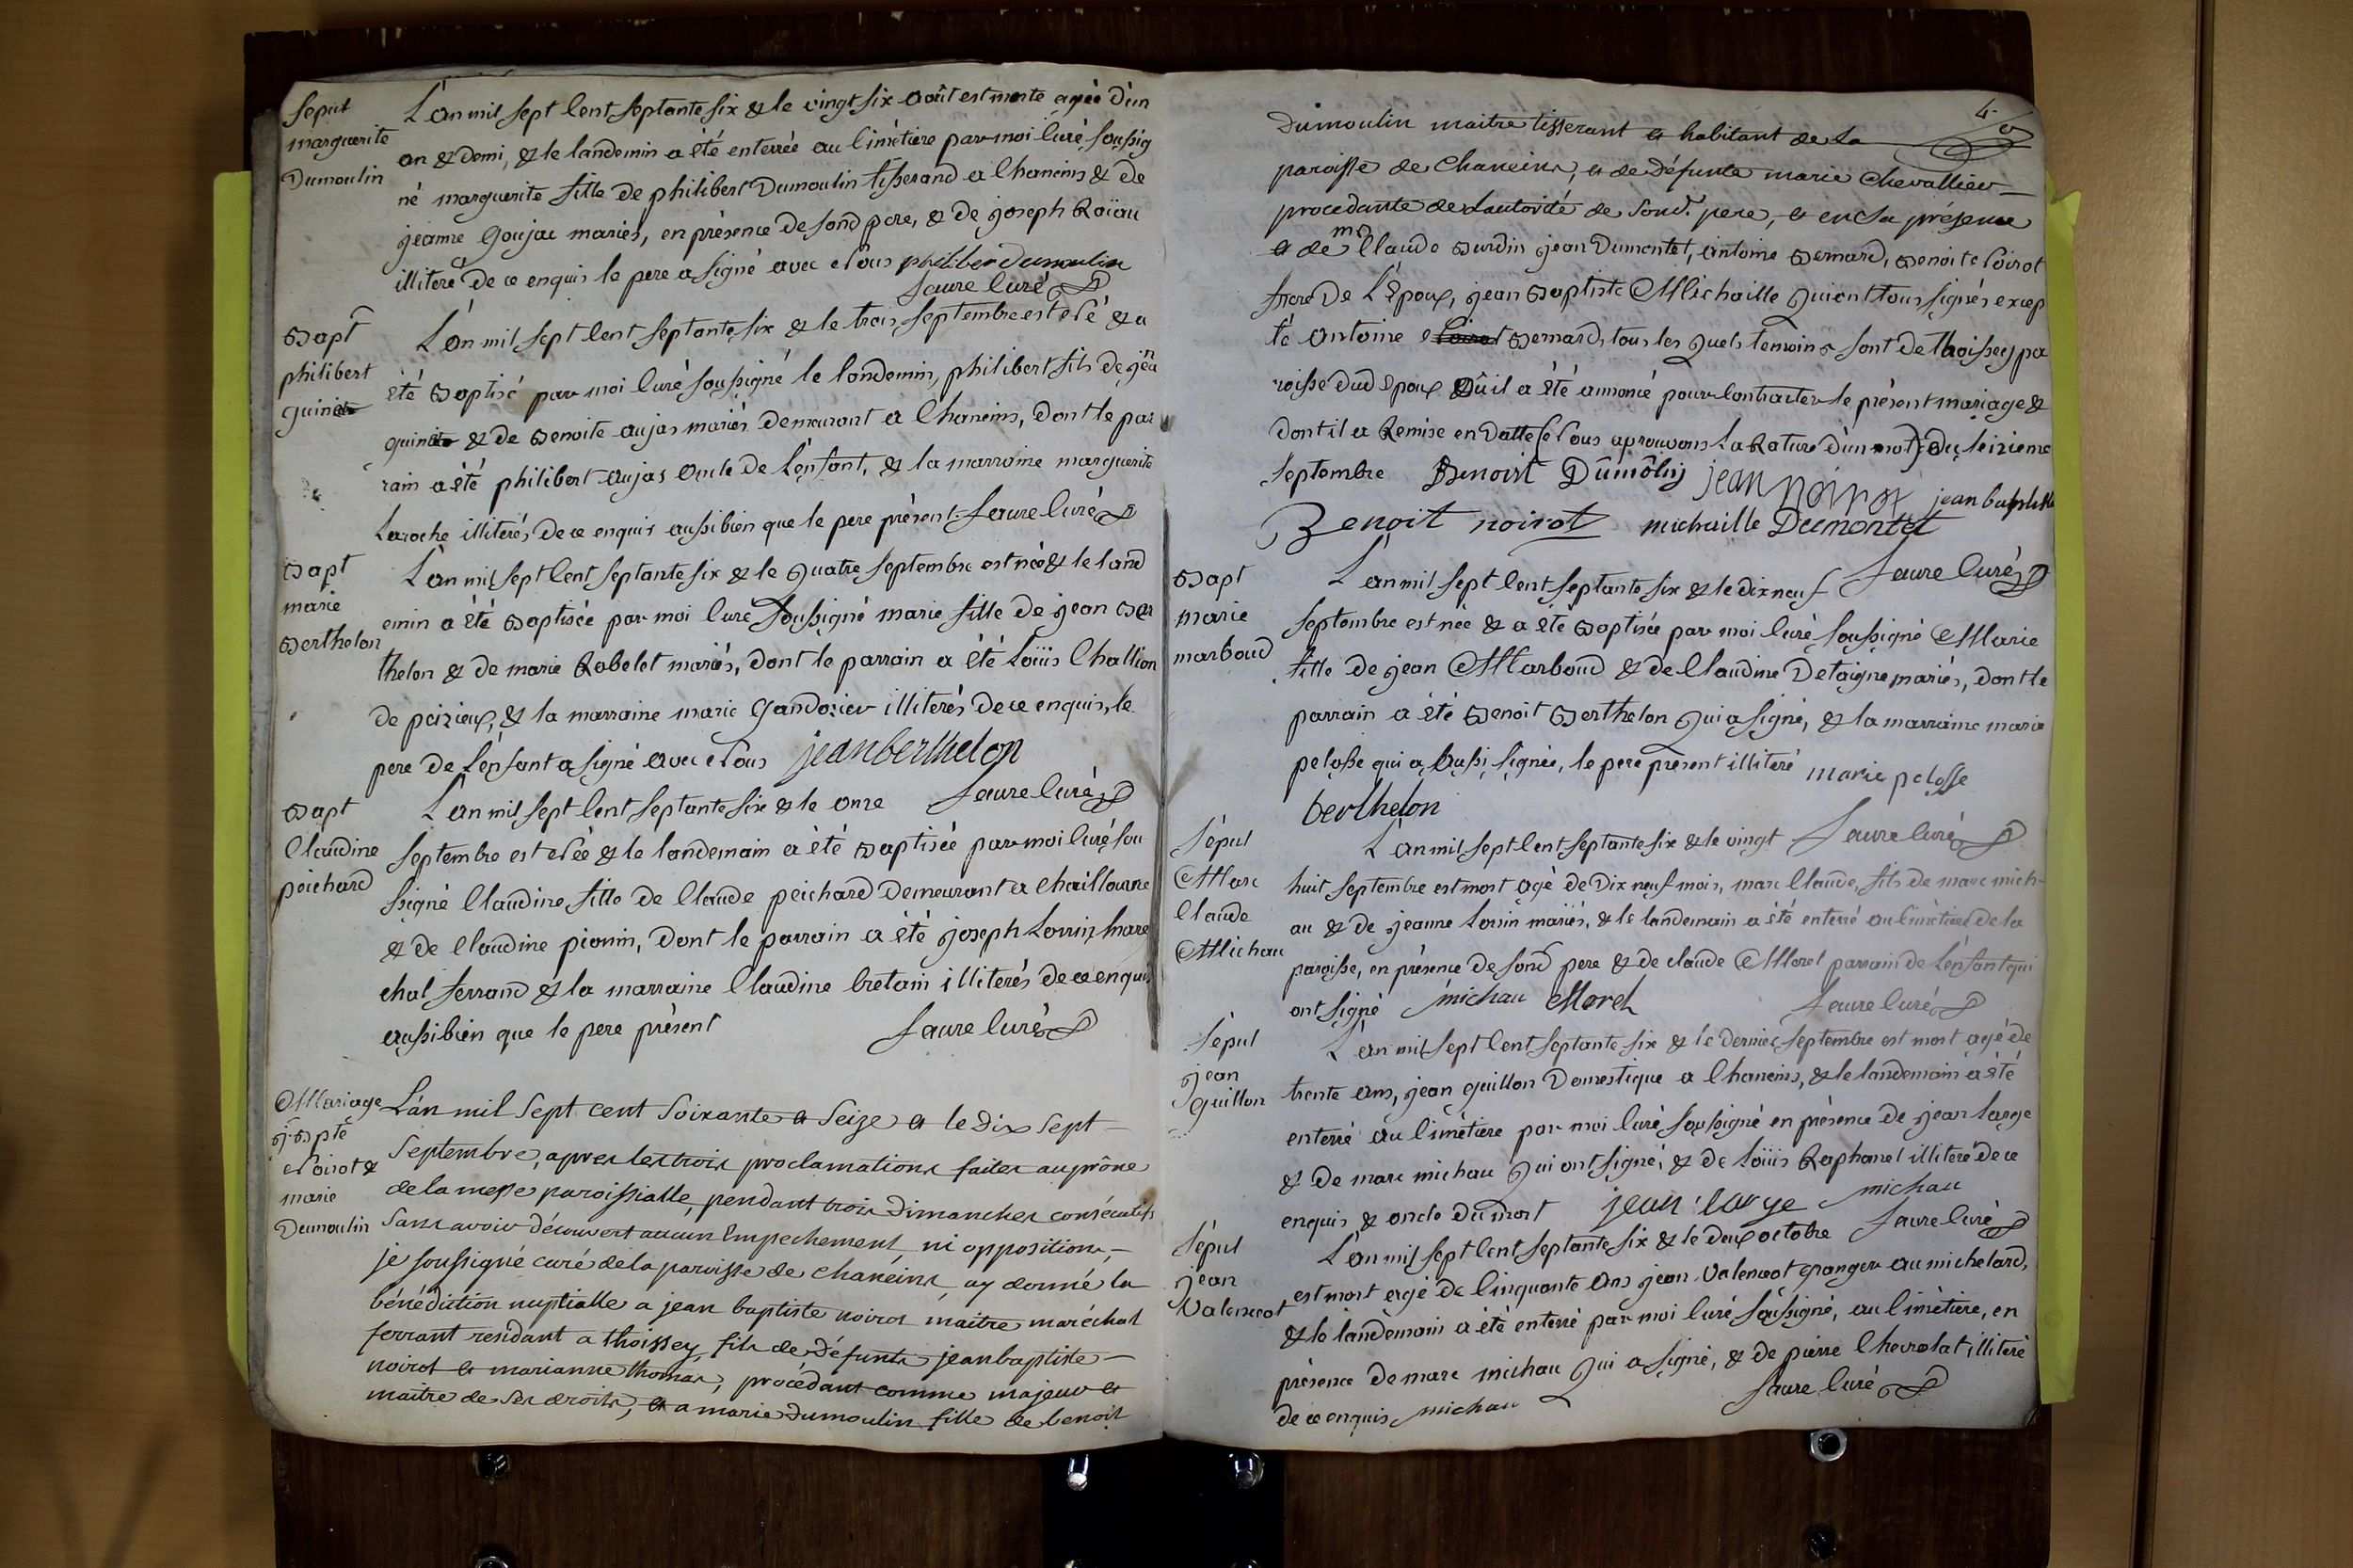 Sepul
marguerite
Dumoulin
L'an mil sept Cent septante six & le vingt six Août est morte agée d'un
an & demi, & le landemin a été enterrée au Cimétiere par moi Curé soussig
né marguerite fille de philibert Dumoulin tisserand a Chaneins & de
jeanne Goujac mariés, en présence de sond pere, & de joseph
illiteré de ce enquis le pere a signé avec Nous philiber dumoulin
faure Curé
Bapt
philibert
L'an mil sept Cent septante six & le trois septembre est Né & a
été Baptisé par moi Curé soussigné le landemin, philibert fils de jēn
& de Benoite aujas mariés demeurant a Chaneins, dont le par
rain a été philibert aujas oncle de L'enfant, & la marraine marguerite
Laroche illiterés de ce enquis aussibien que le pere présent. faure Curé
Bapt
marie
Berthelon
L'an mil sept Cent septante six & le Quatre septembre est née & le land
emin a été Baptisée par moi Curé Soussigné marie fille de jean Ber
thelon & de marie Robelet mariés, dont le parrain a été Loüis Chattion
de peizieux, & la marraine marie illiterés de ce enquis, le
pere de L'enfant a signé avec Nous jean berthelon
faure Curé
Bapt
Claudine
peichard
L'an mil sept Cent septante six & le onze
septembre est Née & le landemain a été Baptisée par moi Curé sou
ssigné Claudine fille de Claude peichard demeurant a Chaillouvre
& de Claudine pionin, dont le parrain a été joseph Lorrin, mare
chal ferrand & la marraine Claudine bretain illiterés de ce enquis
aussibien que le pere présent faure Curé
Mariage
j. Bpte
Noirot &
marie
Dumoulin
L'an mil sept cent soixante et seize et le dix sept
septembre, apres les trois proclamations faites au prône
de la messe paroissialle, pendant trois dimanches consécutifs
sans avoir découvert aucun Empechement ni oppositions,
je soussigné curé de la paroisse de chanéins ay donné la
bénédiction nuptialle a jean baptiste noirot maitre maréchal
ferrant residant a thoissey fils de défunts jean baptiste
noirot et marianne thomas, procédant comme majeur et
maitre de ses droits, et a marie dumoulin fille de benoit
4.
Dumoulin maitre tisserant et habitant de La
paroisse de Chaneins, et de défunte marie Chevallier
procedante de Lautorité de Sond. pere, et en Sa présence
et de mr Claude Burdin jean Dumontet, antoine Bernard, Benoit Noirot
frere de L'Epoux, jean Baptiste Michaille Qui ont tous signés excep
té antoine Bernard, tous les Quels temoins sont de thoissey pa
roisse dud Epoux Où il a été annoncé pour Contracter le présent mariage &
dont il a Remise en Datte (Nous aprouvons La Rature d'un mot) du seizieme
septembre Benoist Dûmôlin jean noirot jean baptiste
Benoit noirot michaille Dumontet
faure Curé
Bapt
marie
marboud
L'an mil sept Cent septante six & le dix neuf
septembre est née & a été Baptisée par moi Curé soussigné Marie
fille de jean Marboud & de Claudine Detaigne mariés, dont le
parrain a été Benoit Berthelon Qui a signé, & la marraine marie
pelosse qui a Aussi signée, le pere présent illiteré marie pelosse
berthelon
faure Curé
Sépul
Marc
Claude
Michau
L'an mil sept Cent septante six & le vingt
huit septembre est mort agé de Dix neuf mois, marc Claude, fils de marc mich-
au & de jeanne Lorin mariés, & le landemain a été enterré au Cimétiere de la
paroisse, en présence de sond pere & de claude Morel parrain de L'enfant qui
ont signé michau Morel faure Curé
Sépul
jean
guillon
L'an mil sept Cent septante six & le dernier septembre est mort agé de
trente ans, jean guillon Domestique a Chaneins, & le landemain a été
enterré au Cimétiere par moi Curé soussigné en présence de jean Large
& de marc michau Qui ont signé, & de Loüis Raphanel illiteré de ce
enquis & oncle du mort jean large michau
faure Curé
Sépul
jean
Valencot
L'an mil sept Cent septante six & le deux octobre
est mort agé de Cinquante ans jean Valencot granger au michelard,
& le landemain a été enterré par moi Curé soussigné, au Cimétiere, en
présence de marc michau Qui a signé, & de pierre Chevrolat illiteré
de ce enquis michau faure Curé